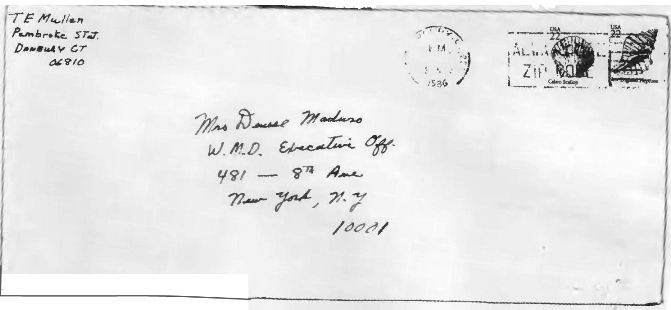 T E Mullen
Pembroke Sta.
Danbury CT
06810
PM
1986
ALWAYS USE
ZIP CODE
USA
22
Calico Scallop
USA
22
New England Neptune
Mrs Denise Maduro
W.M.D. Executive Off.
481 — 8TH Ave
New York, N.Y
10001